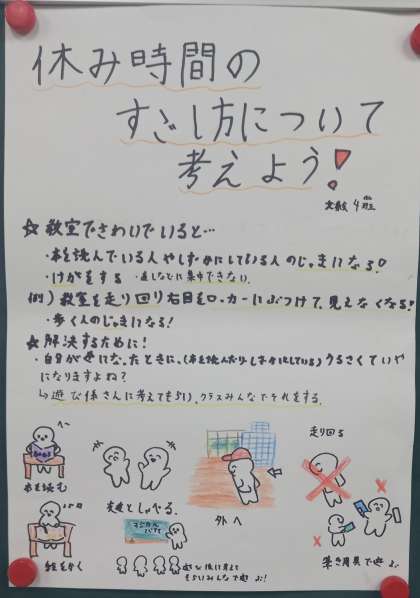 休み時間の
すごし方について
考えよう!
文教 4班
☆教室でさわいでいると…
・本を読んでいる人やしずかにしている人のじゃまになる!
・けがをする ・道しるべに集中できない。
例)教室を走り回り右目をロッカーにぶつけて、見えなくなる!
・歩く人のじゃまになる!
☆解決するために!
・自分が になったときに、(本を読んだり、しずかにしている)うるさくていや
になりますよね?
↳遊び係さんに考えてもらい、クラスみんなでそれをする。
本を読む
絵をかく
友達としゃべる。
外へ
走り回る
筆き用具で遊ぶ
遊び係に考えて
もらいみんなで遊ぶ!